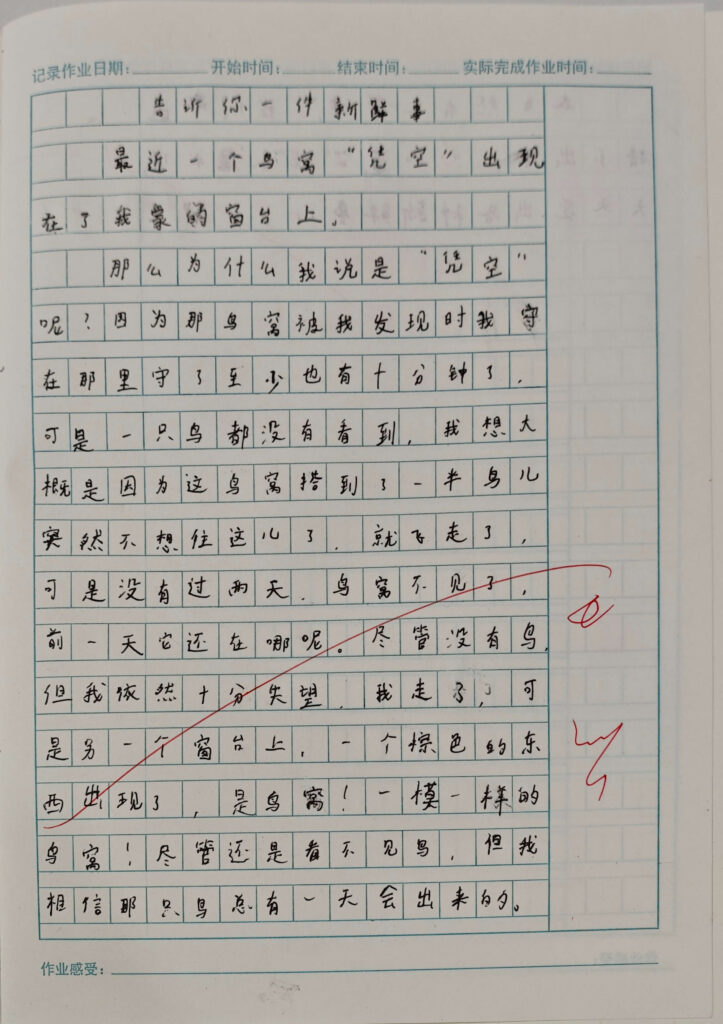 记录作业日期： 开始时间： 结束时间： 实际完成作业时间：
告诉你一件新鲜事
最近一个鸟窝“凭空”出现
在了我家的窗台上。
那么为什么我说是“凭空”
呢？因为那鸟窝被我发现时我守
在那里守了至少也有十分钟了，
可是一只鸟都没有看到，我想大
概是因为这鸟窝搭到了一半鸟儿
突然不想住这儿了，就飞走了，
可是没有过两天，鸟窝不见了，
前一天它还在哪呢。尽管没有鸟，
但我依然十分失望，我走了，可
是另一个窗台上，一个棕色的东
西出现了，是鸟窝！一模一样的
鸟窝！尽管还是看不见鸟，但我
相信那只鸟总有一天会出来的。
作业感受：